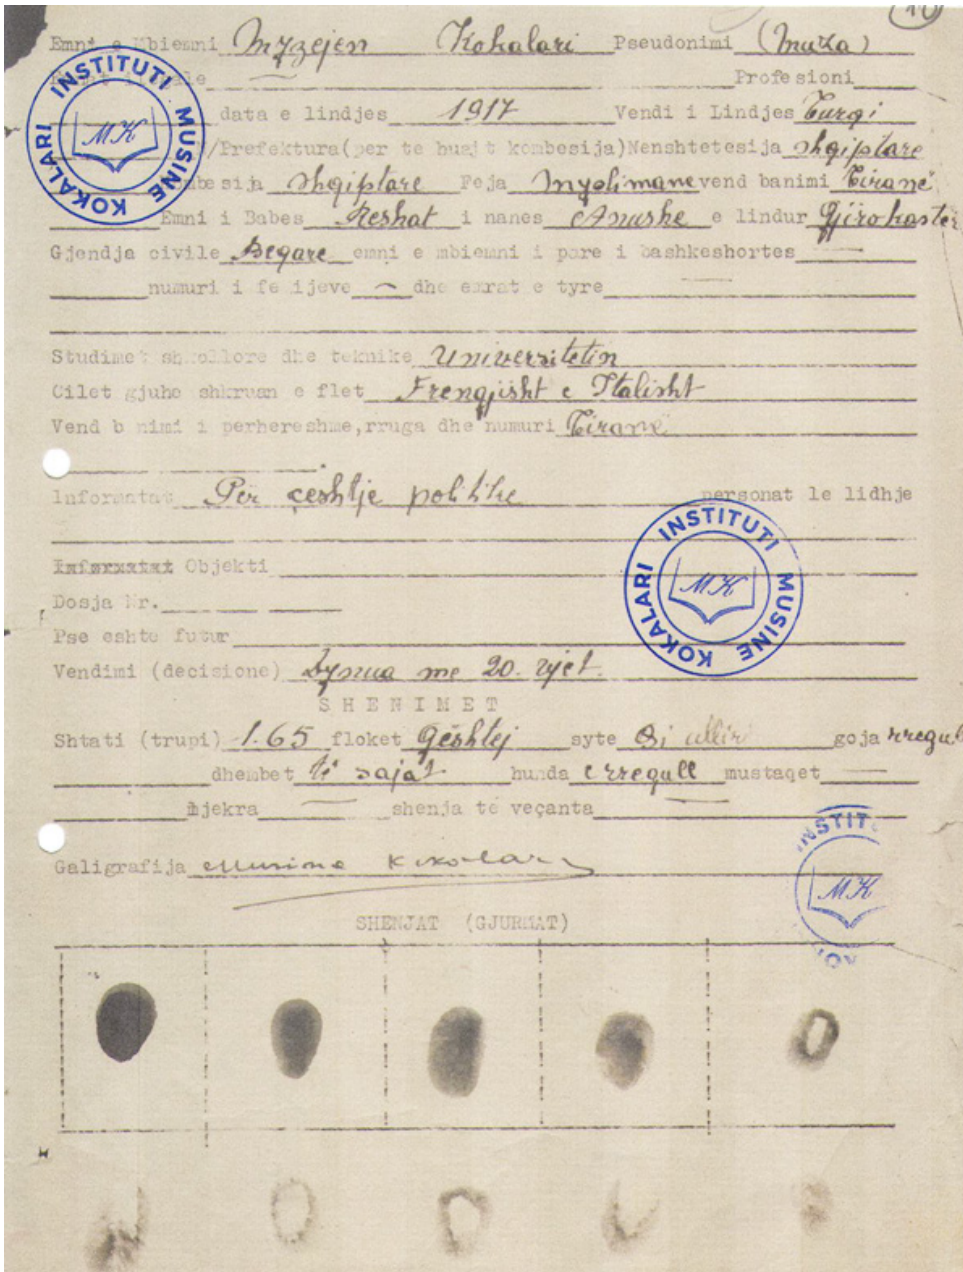 Emni e Mbiemni Myzejen Kokalari Pseudonimi (Muza)
Profesioni
data e lindjes 1917 Vendi i Lindjes Turqi
/Prefektura(per te huajt kombesija)Nenshtetesija Shqiptare
Shqiptare Feja Myslimane vend banimi Tiranë
Emni i Babes Reshat i nanes Hanushe e lindur Gjirokaster
Gjendja civile Beqare emni e mbiemni i pare i bashkeshortes
numuri i fe ijeve dhe emrat e tyre
Studimet shkollore dhe teknike Universitetin
Cilet gjuhe shkruan e flet Frengjisht e Italisht
Vend b nimi i perhereshme,rruga dhe numuri Tiranë
Informatat Për çeshtje politike personat le lidhje
Informatat Objekti
Dosja Nr.
Pse eshte futur
Vendimi (decisione) Dynua me 20. vjet.
SHENIMET
Shtati (trupi) 1.65 floket Gështej syte Si ulliri goja rregull
dhembet të sajat hunda e rregull mustaqet
mjekra shenja të veçanta
Galigrafija Musine Kokalari
SHENJAT (GJURMAT)
INSTITUTI MUSINE KOKALARI
MK
INSTITUTI MUSINE KOKALARI
MK
MK